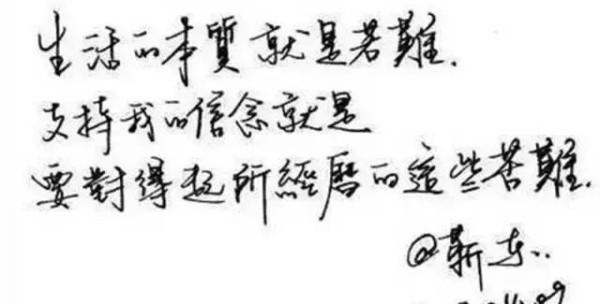 生活的本質就是苦難.
支持我的信念就是
要對得起所經曆的這些苦難.
@靳东..